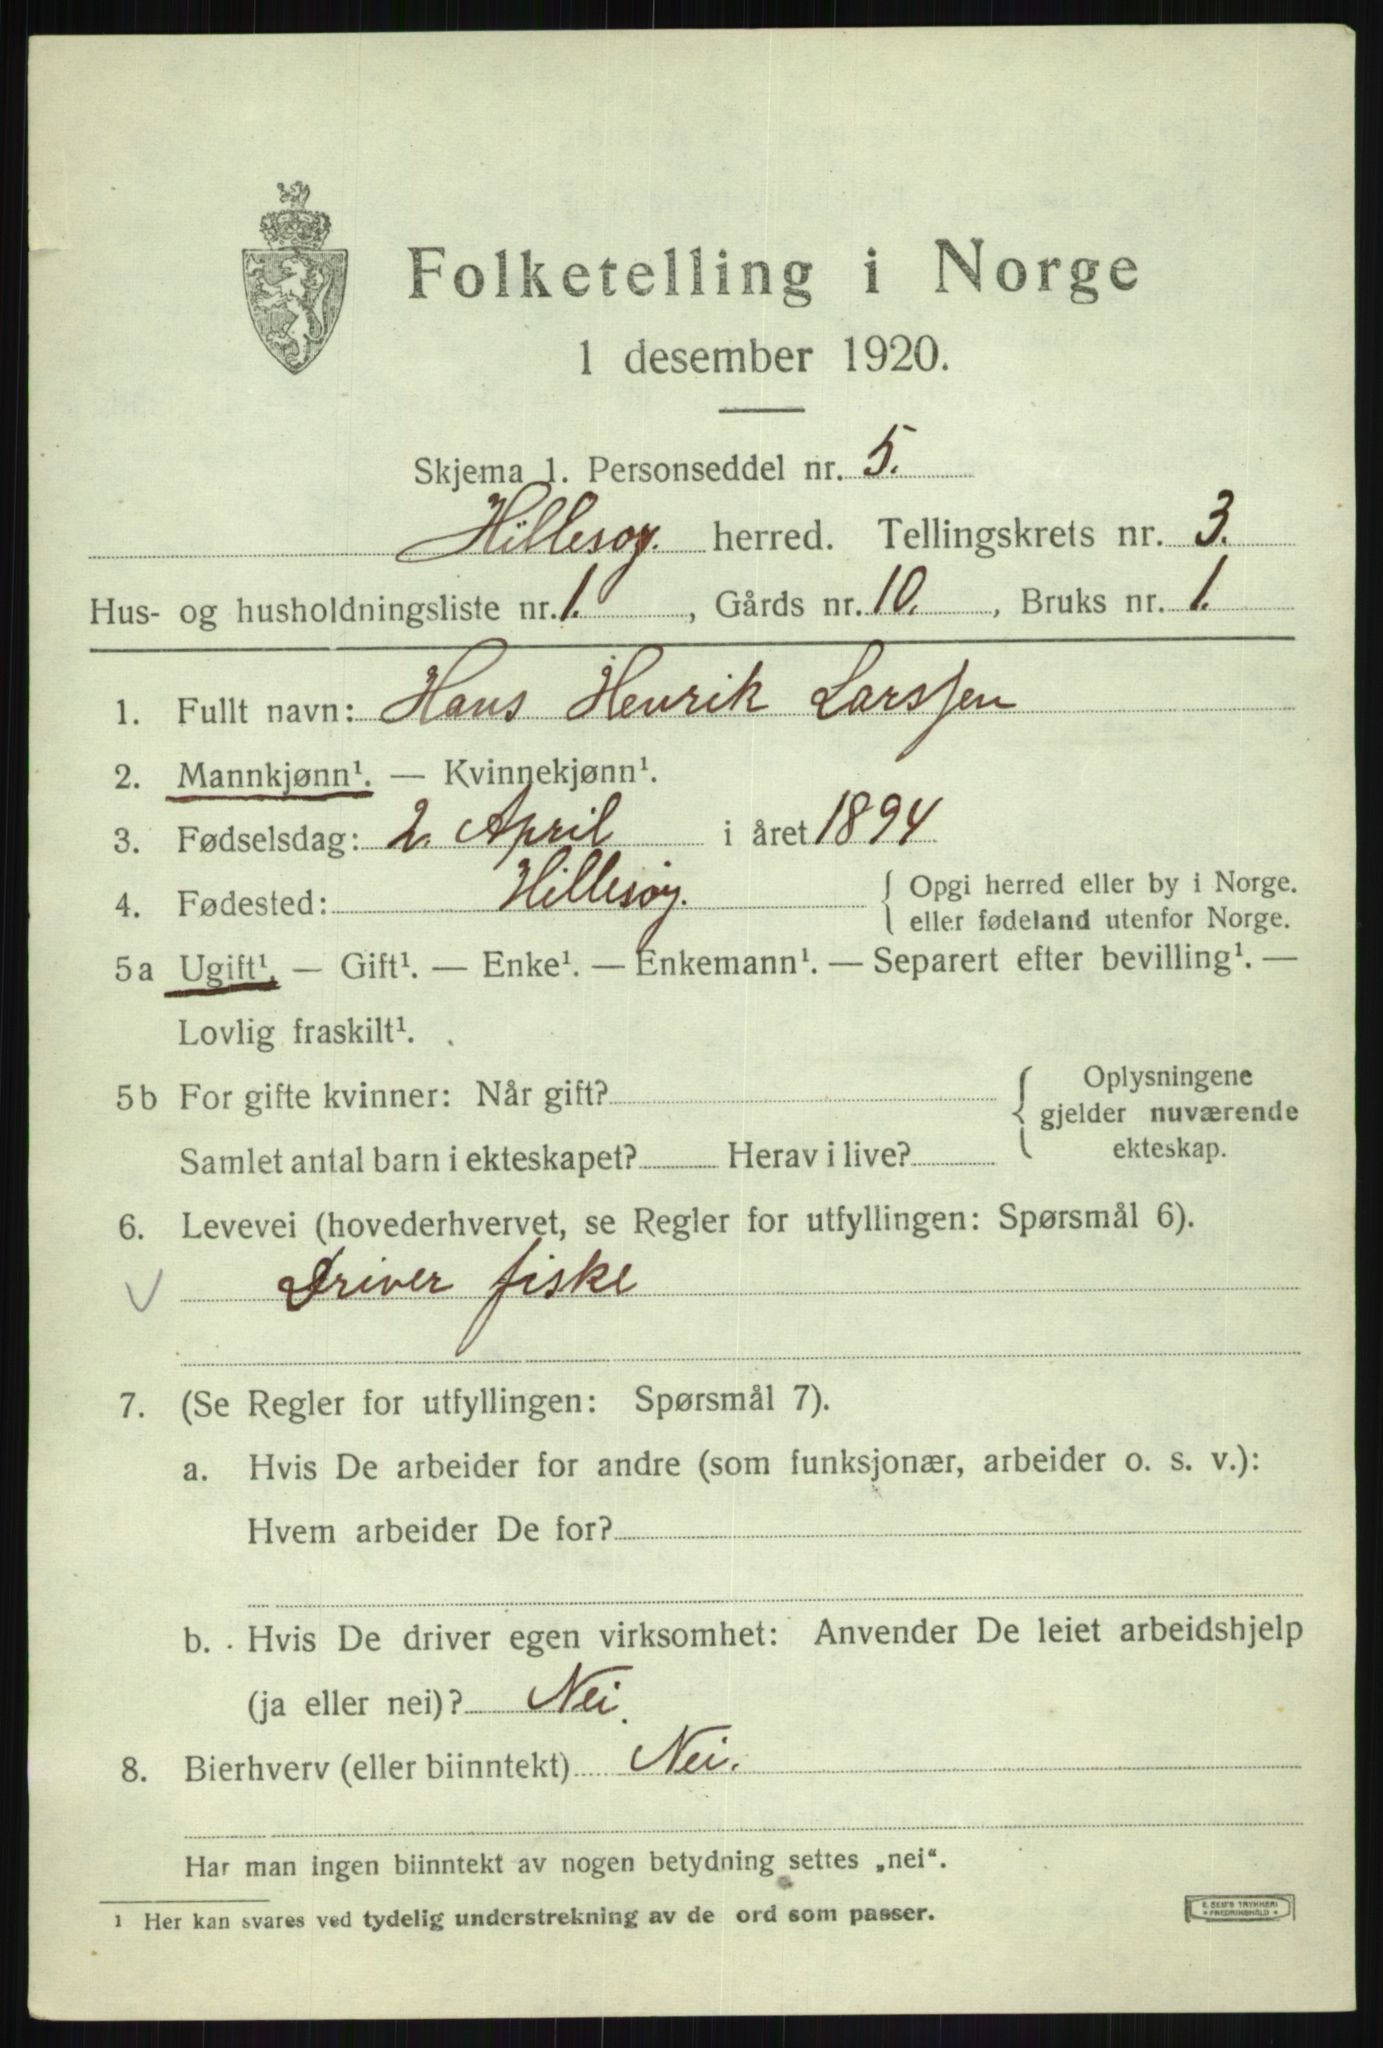 Folketelling i Norge
1 desember 1920.
Skjema 1. Personseddel nr. 5.
Hillesøy. herred. Tellingskrets nr. 3.
Hus- og husholdningsliste nr. 1. , Gårds nr. 10. , Bruks nr. 1.
1. Fullt navn: Hans Henrik Larssen
2. Mannkjønn¹. — Kvinnekjønn¹.
3. Fødselsdag: 2. April i året 1894
4. Fødested: Hillesøy. { Opgi herred eller by i Norge.
eller fødeland utenfor Norge.
5a Ugift¹. — Gift¹. — Enke¹. — Enkemann¹. — Separert efter bevilling¹. —
Lovlig fraskilt¹.
5b For gifte kvinner: Når gift? { Oplysningene
gjelder nuværende
Samlet antal barn i ekteskapet? Herav i live? ekteskap.
6. Levevei (hovederhvervet, se Regler for utfyllingen: Spørsmål 6).
V Driver fiske
7. (Se Regler for utfyllingen: Spørsmål 7).
a. Hvis De arbeider for andre (som funksjonær, arbeider o. s. v.):
Hvem arbeider De for?
b. Hvis De driver egen virksomhet: Anvender De leiet arbeidshjelp
(ja eller nei)? Nei.
8. Bierhverv (eller biinntekt) Nei.
Har man ingen biinntekt av nogen betydning settes „nei“.
¹ Her kan svares ved tydelig understrekning av de ord som passer.
E. SEM'S TRYKKERI
FREDRIKSHALD